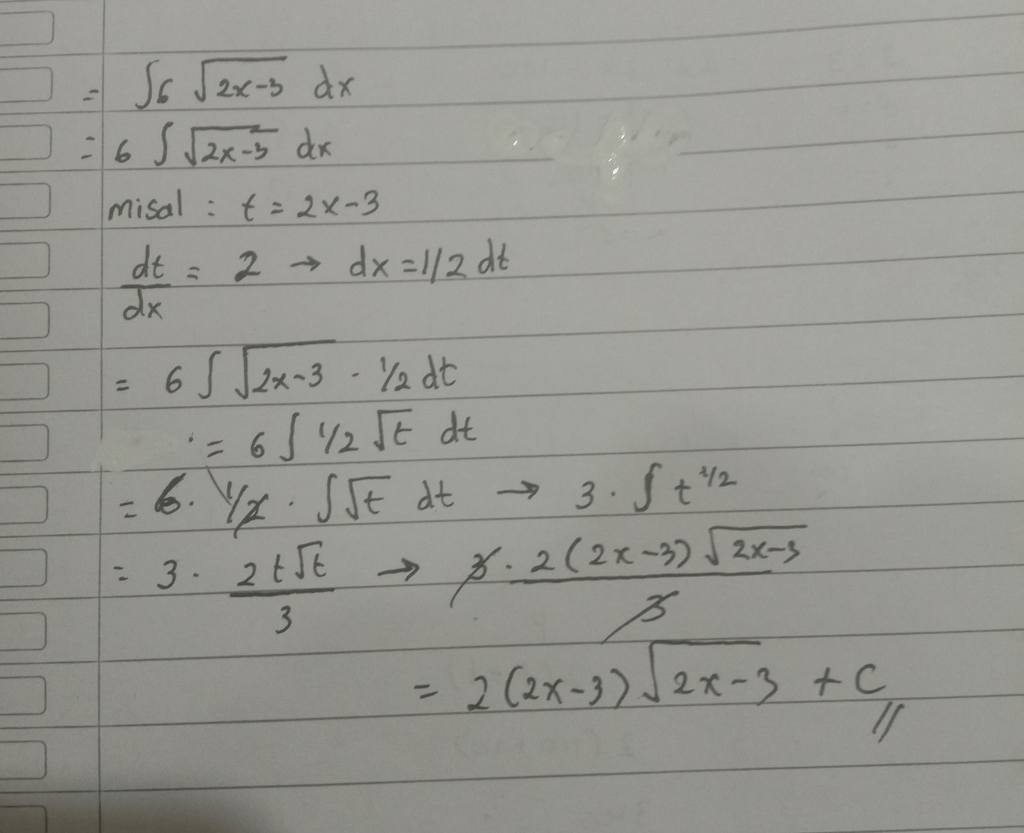 = ∫6 √(2x-3) dx
= 6 ∫ √(2x-3) dx
misal : t = 2x-3
dt/dx = 2 → dx = 1/2 dt
= 6 ∫ √(2x-3) · 1/2 dt
= 6 ∫ 1/2 √t dt
= 6 · 1/2 · ∫√t dt → 3 · ∫ t^1/2
= 3 · 2t√t/3 → 3 · 2(2x-3)√(2x-3)/3
= 2(2x-3)√(2x-3) + C //